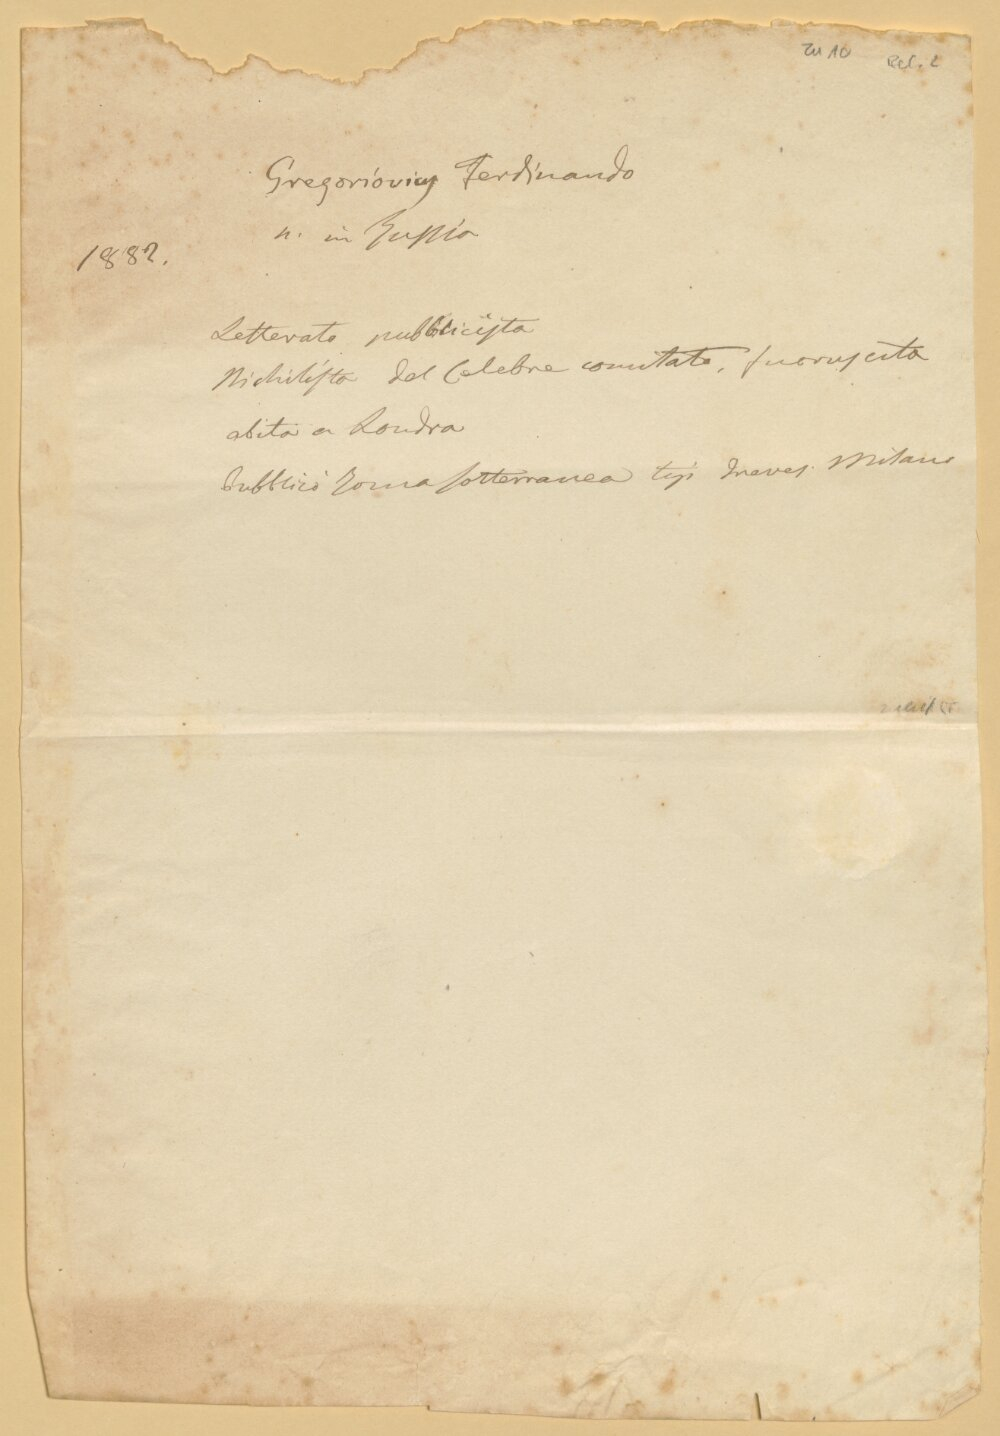 Zu AU
Gregorovius Ferdinando
n. in Russia
1882.
Letterato pubblicista
Nichilista del Celebre comitato, fuoruscito
abita a Londra
Pubblicò Roma Sotterranea tip Treves. Milano